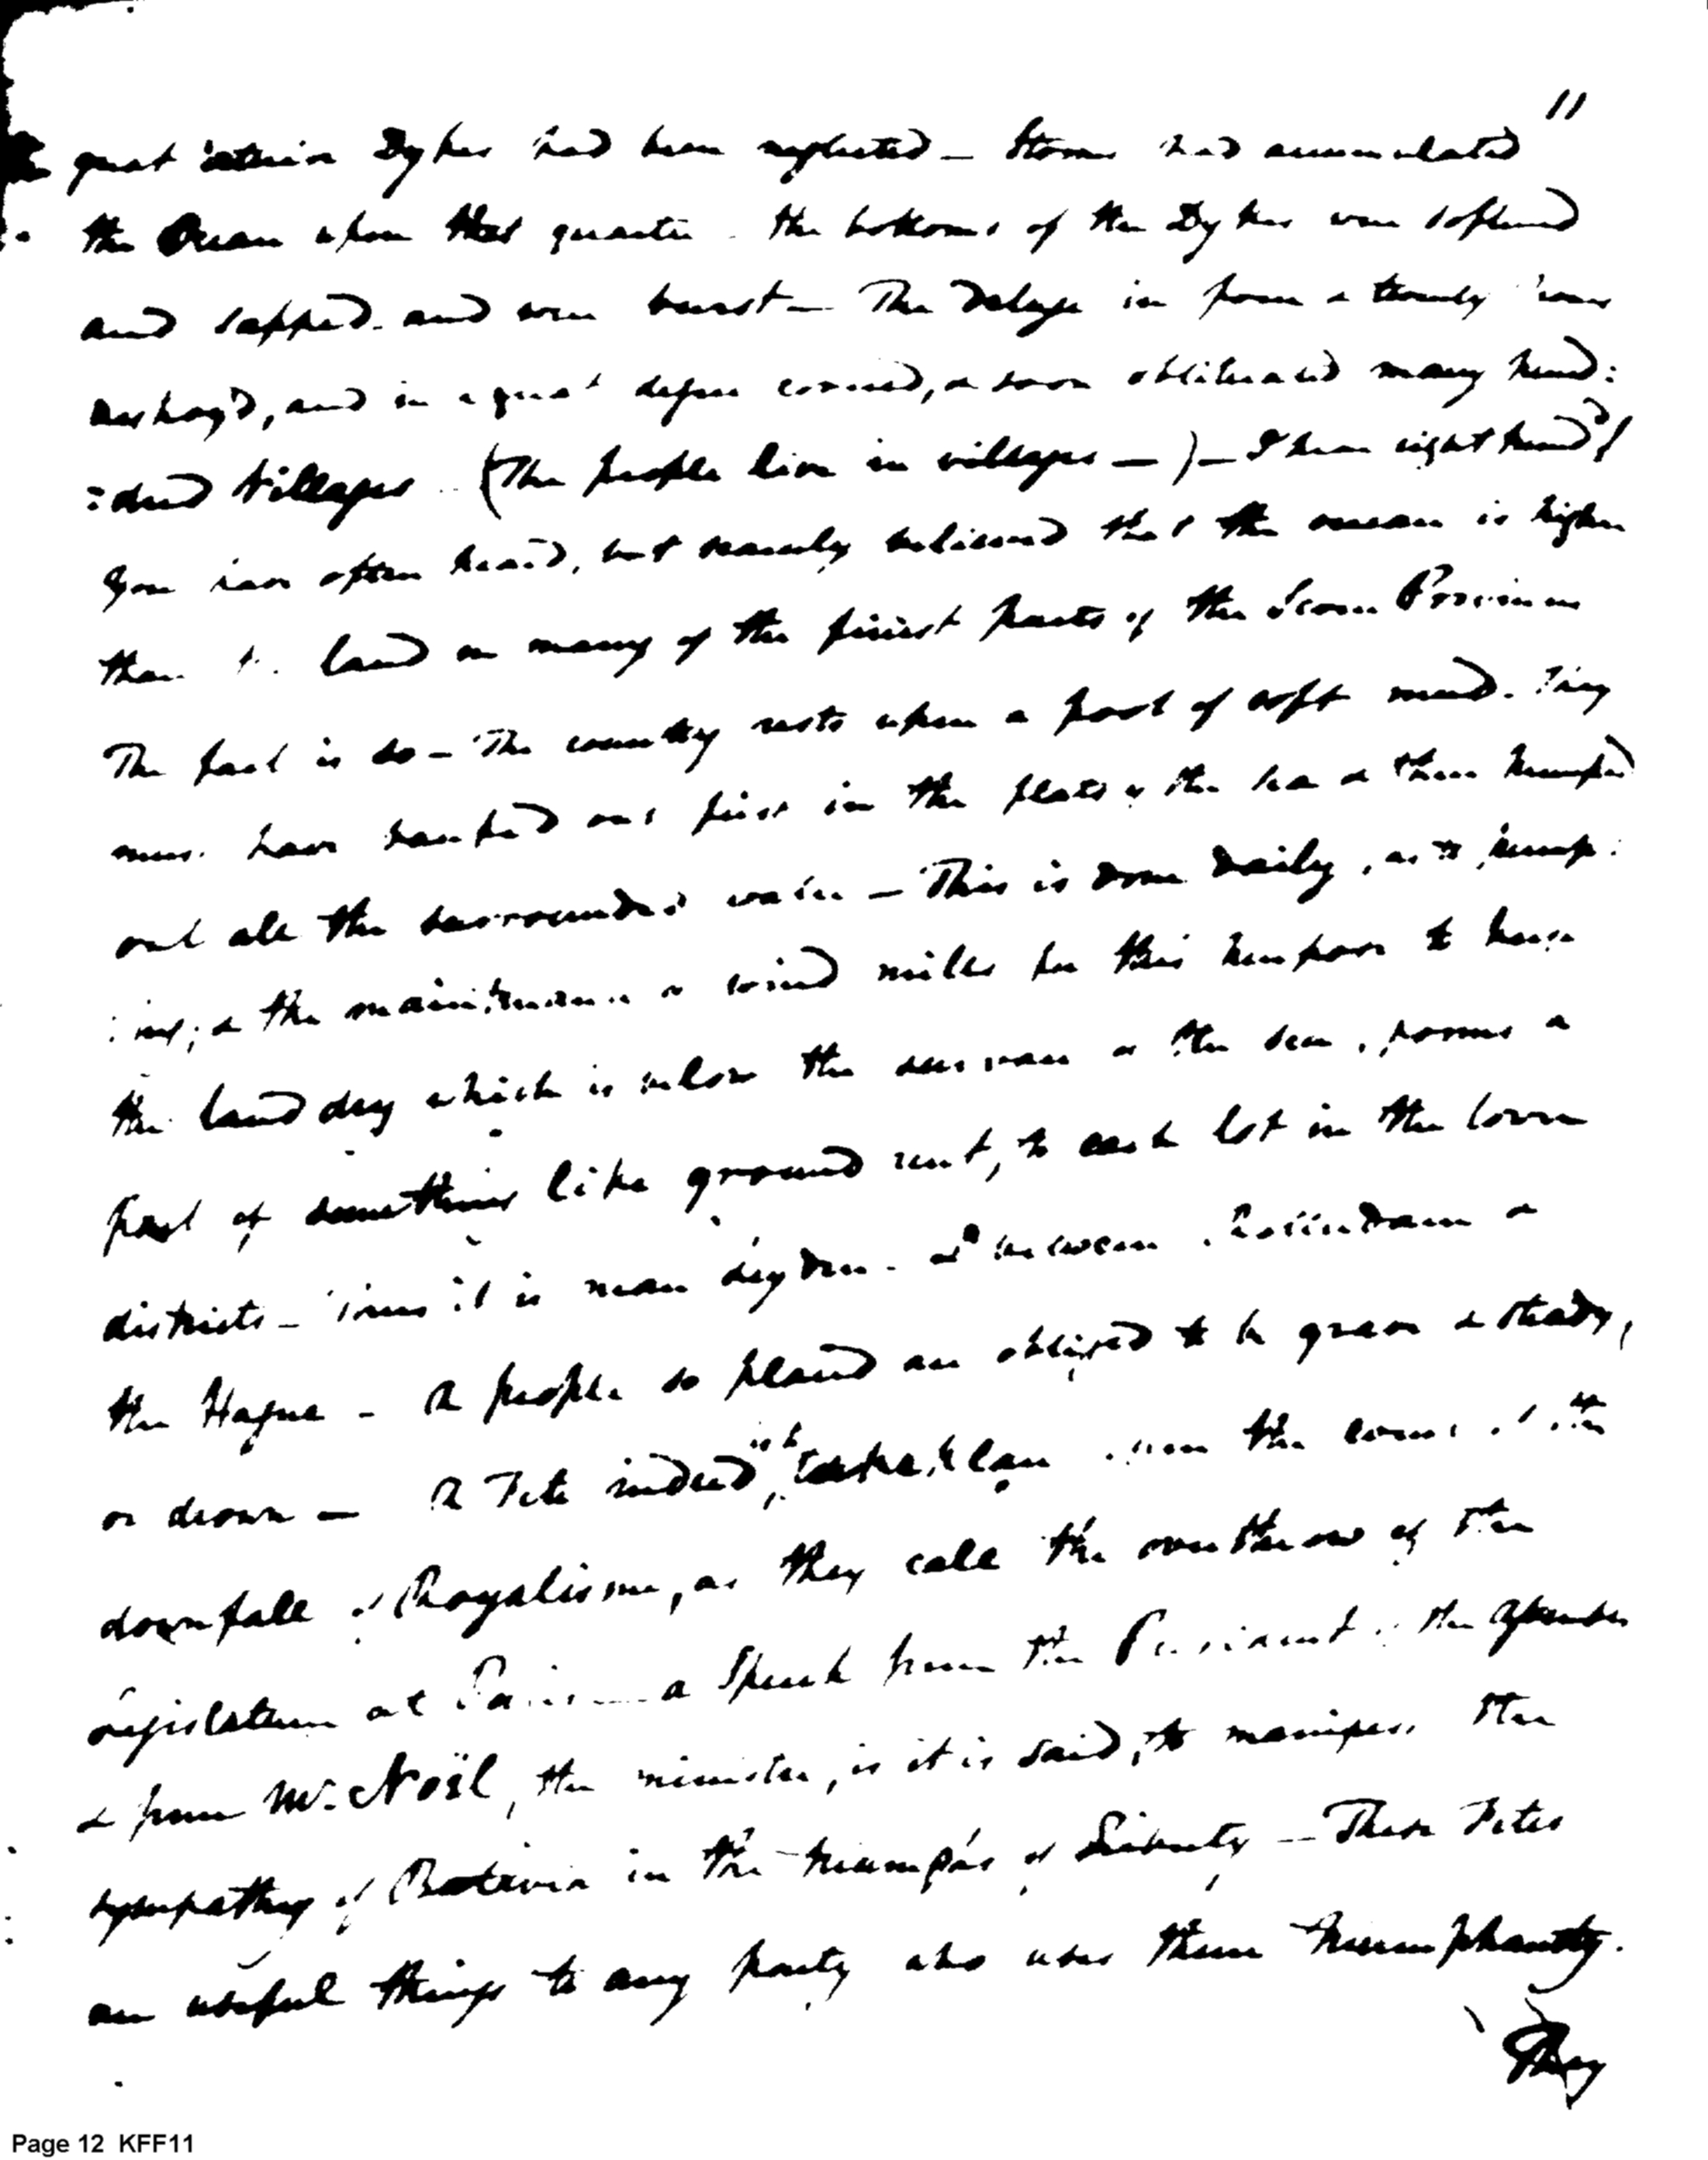 11
great interior Dykes had been neglected – Storms had accumulated
the Ocean upon that quarter – the bottoms of the Dykes were softened
and sapped – and were burst – The Deluge in form a
and in a great degree covered, & soon obliterated many hun:
:dred Villages – (The people live in villages – ) – I hear eight hund?!
You have often heard, but scarcely believed that the ocean is higher
than the land on many of the finest parts of the Seven Provinces
The fact is so – The country rests upon a pool of soft mud. They
must have banked out first in the flats of the sea & then pumped
out all the surrounded water – This is done daily, as to pump:
:ing; & the maintenance of wind mills for this purpose to keep
the land dry which is below the surface of the sea, forms a
part of something like ground rent, to each lot in the lower
districts – Thus it is near Leyden – & between Rotterdam &
the Hague – A people so placed are obliged to be grave & steady,
or drown – A Fete indeed, is to take place upon the
downfall of Royalism, as they call the overthrow of the
Legislature at Paris – a Speech from the President of the
& from Mr. Noël, the minister, is it is said, to manifest the
sympathy of Batavia in the triumphs of Liberty – These Fetes
are useful things to any party who uses them triumphantly.
They
Page 12 KFF11